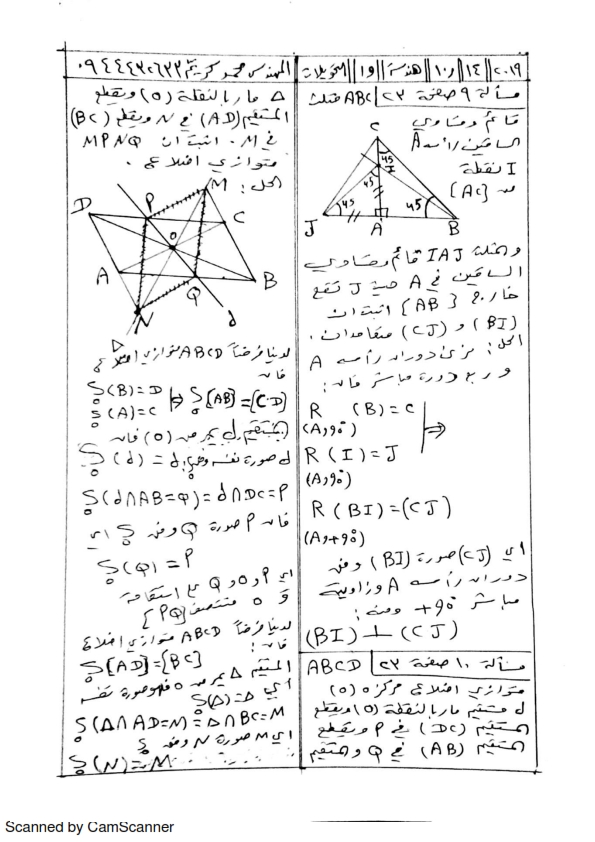 ٢٠١٩ || ١٤ || ١٠ || هندسة || ١٩ || التحويلات
المهندس محمود كريّم ٠٩٤٤٤٣٠٦٣٣
مسألة ٩ صفحة ٢٣ ABC مثلث
قائم ومتساوي
الساقين رأسه A
I نقطة
من [AC]
C
45
I
45
45
J
A
B
ومثلث IAJ قائم ومتساوي
الساقين في A حيث J تقع
خارج [AB] اثبت ان
(BI) و (CJ) متعامدان.
الحل: نرى دوران رأسه A
وربع دورة مباشر فان:
R (B)=C
(A,90°)
R (I)=J
(A,90°)
⇒
R (BI)=(CJ)
(A,+90°)
اي (CJ) صورة (BI) وفق
دوران رأسه A وزاويته
مباشر +90° ومنه:
(BI) ⊥ (CJ)
مسألة ١٠ صفحة ٢٣ ABCD
متوازي اضلاع مركزه (O)
d مستقيم مار بالنقطة (O) ويقطع
المستقيم (DC) في P ويقطع
المستقيم (AB) في Q والمستقيم
Δ مار بالنقطة (O) ويقطع
المستقيم (AD) في N ويقطع (BC)
في M. اثبت ان MPNQ
متوازي اضلاع.
الحل:
M
D
P
C
O
A
Q
B
N
d
Δ
لدينا فرضاً ABCD متوازي اضلاع
فان
S(B)=D
O
S(A)=C
O
⇒ S[AB]=[CD]
O
المستقيم d يمر من (O) فان
d صورة نفسه وفق S(d)=d
O
S(d∩AB=Q)=d∩DC=P
O
فان P صورة Q وفق S اي
O
S(Q)=P
O
اي P و O و Q على استقامة
و O منتصف [PQ]
لدينا فرضاً ABCD متوازي اضلاع
فان:
S[AD]=[BC]
O
المستقيم Δ يمر من O فهو صورة نفسه
اي S(Δ)=Δ
O
S(Δ∩AD=M)=Δ∩BC=M
O
اي M صورة N وفق S
O
S(N)=M
O
Scanned by CamScanner